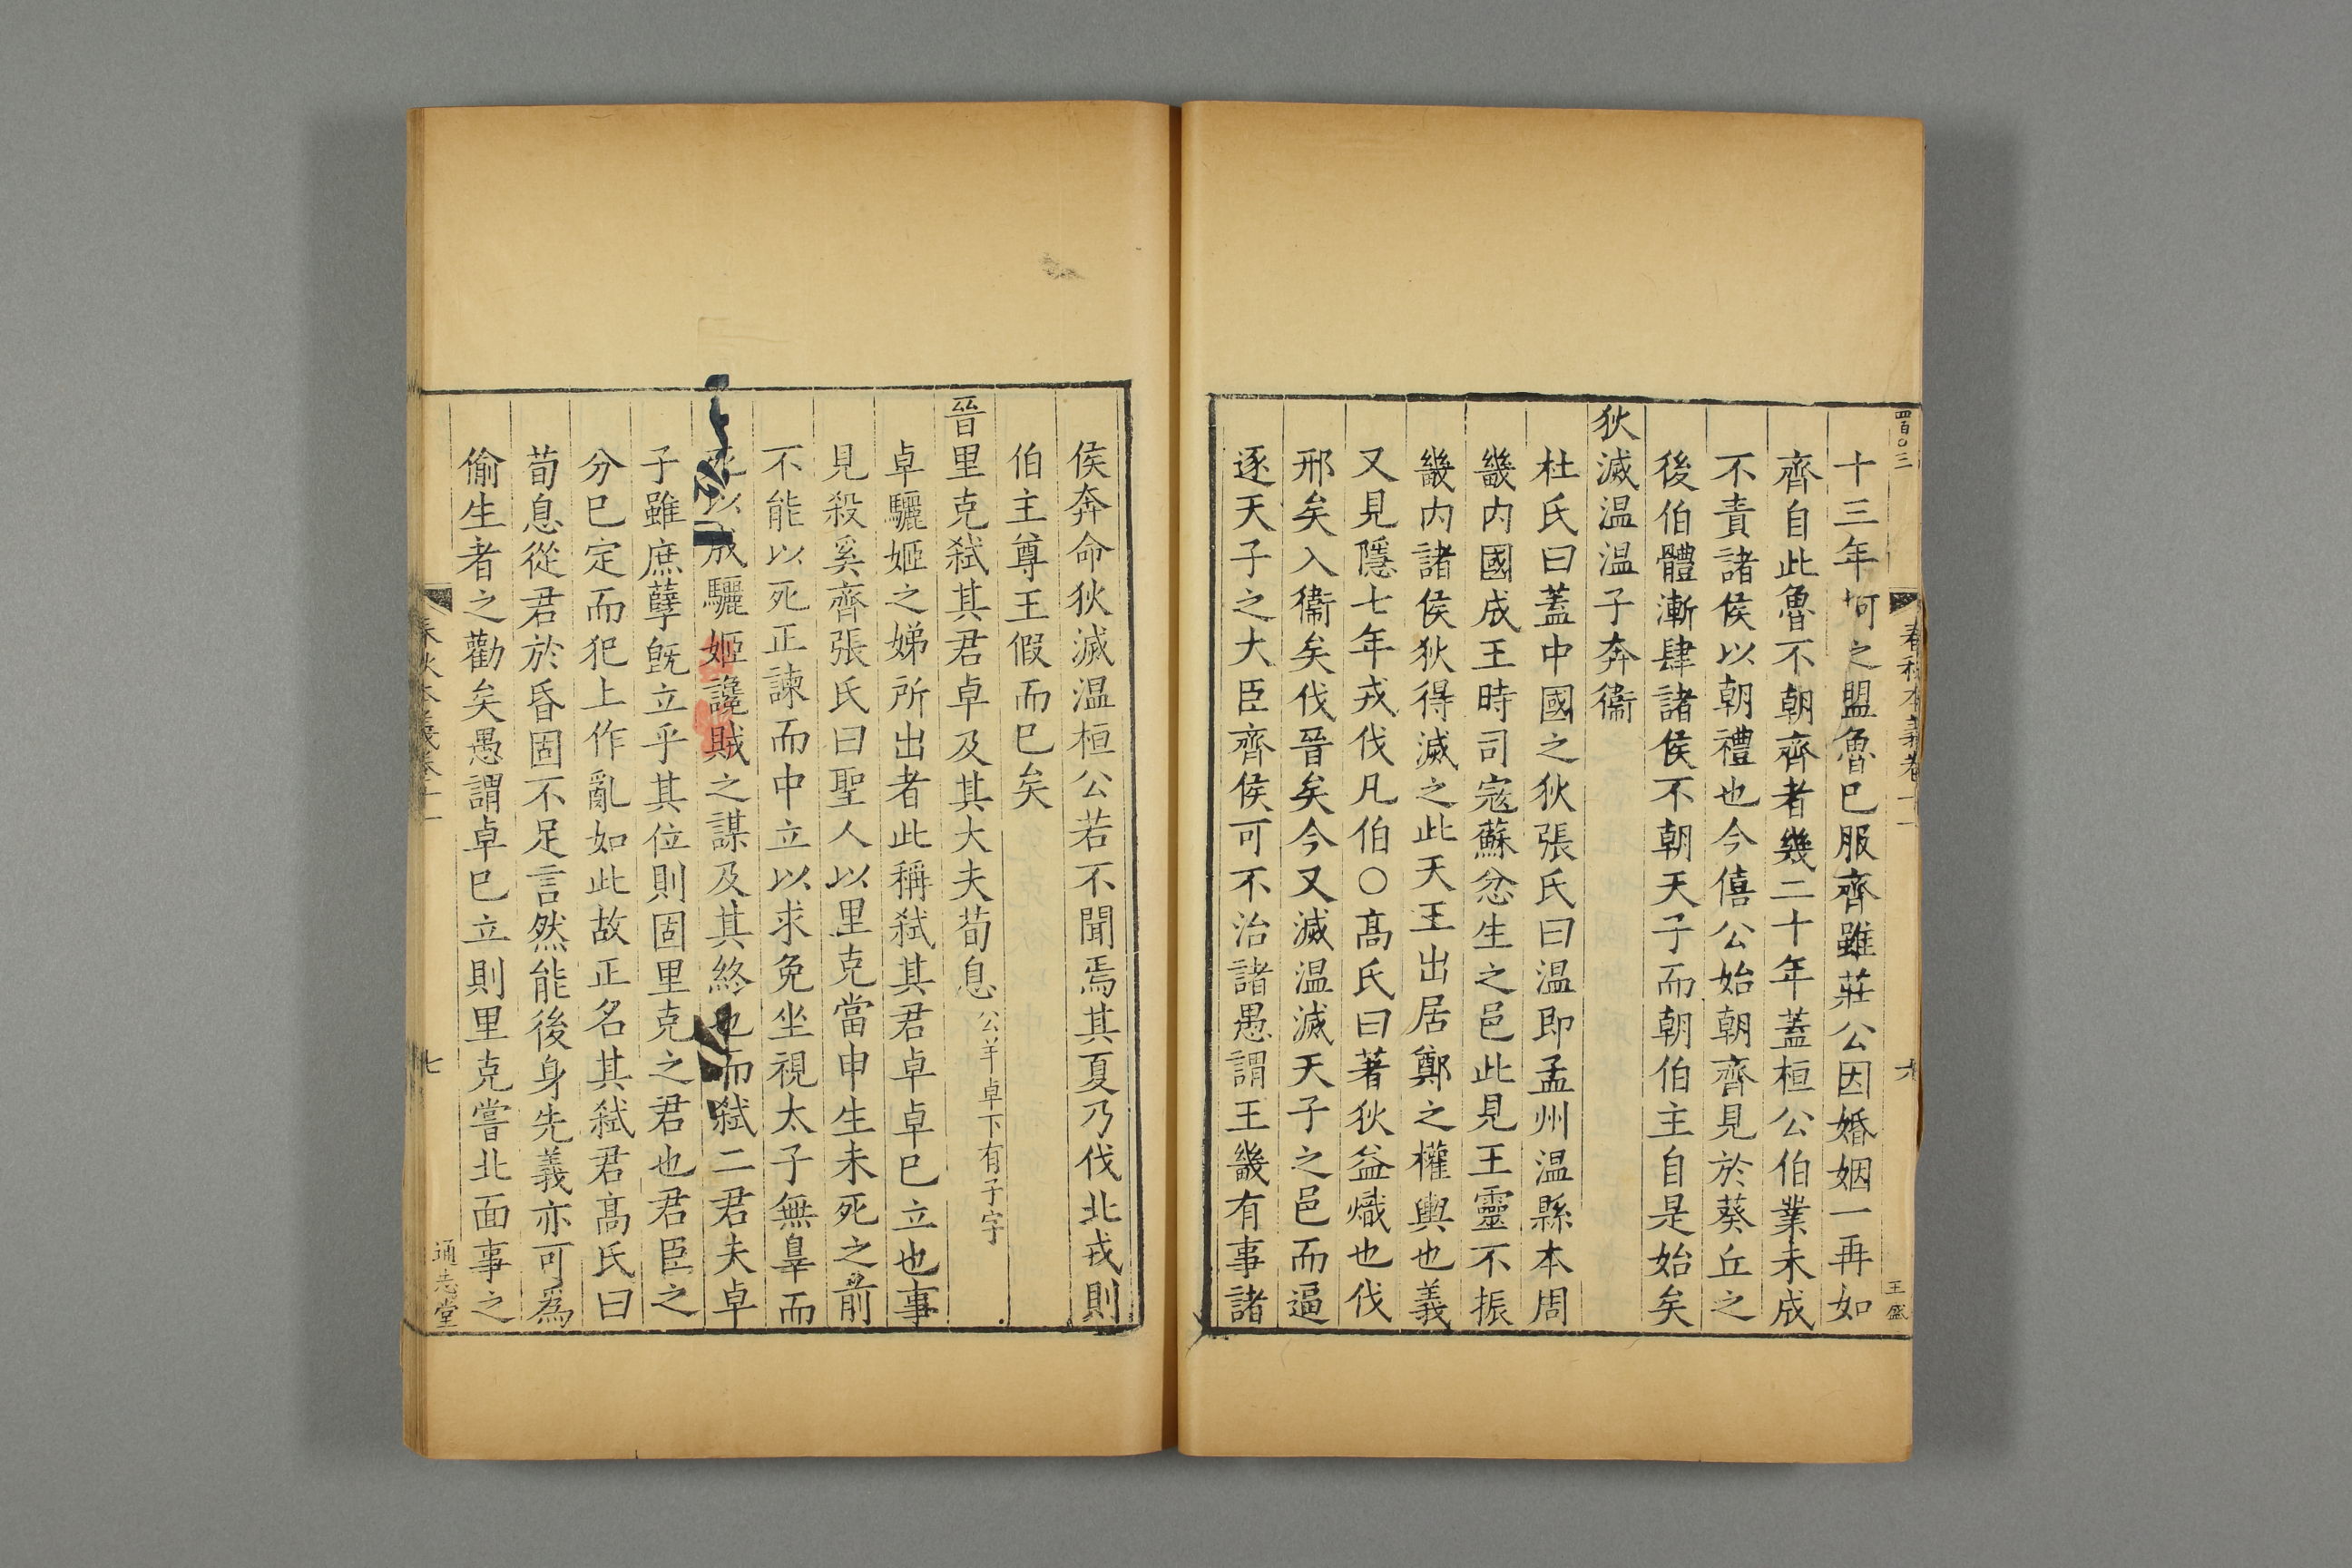 四百〇三
春秋本義卷十一
六
王盛
十三年柯之盟魯已服齊雖莊公因婚姻一再如
齊自此魯不朝齊者幾二十年蓋桓公伯業未成
不責諸侯以朝禮也今僖公始朝齊見於葵丘之
後伯體漸肆諸侯不朝天子而朝伯主自是始矣
狄滅温温子奔衞
杜氏曰蓋中國之狄張氏曰温即孟州温縣本周
畿内國成王時司寇蘇忿生之邑此見王靈不振
畿内諸侯狄得滅之此天王出居鄭之權輿也義
又見隱七年戎伐凡伯○髙氏曰著狄益熾也伐
邢矣入衞矣伐晉矣今又滅温滅天子之邑而逼
逐天子之大臣齊侯可不治諸愚謂王畿有事諸
侯奔命狄滅温桓公若不聞焉其夏乃伐北戎則
伯主尊王假而已矣
晉里克弑其君卓及其大夫荀息公羊卓下有子字
卓驪姬之娣所出者此稱弑其君卓卓已立也事
見殺奚齊張氏曰聖人以里克當申生未死之前
不能以死正諫而中立以求免坐視太子無辠而
死以成驪姬讒賊之謀及其終也而弑二君夫卓
子雖庶孽旣立乎其位則固里克之君也君臣之
分已定而犯上作亂如此故正名其弑君髙氏曰
荀息從君於昏固不足言然能後身先義亦可爲
偷生者之勸矣愚謂卓已立則里克嘗北面事之
春秋本義卷十一
七
通志堂